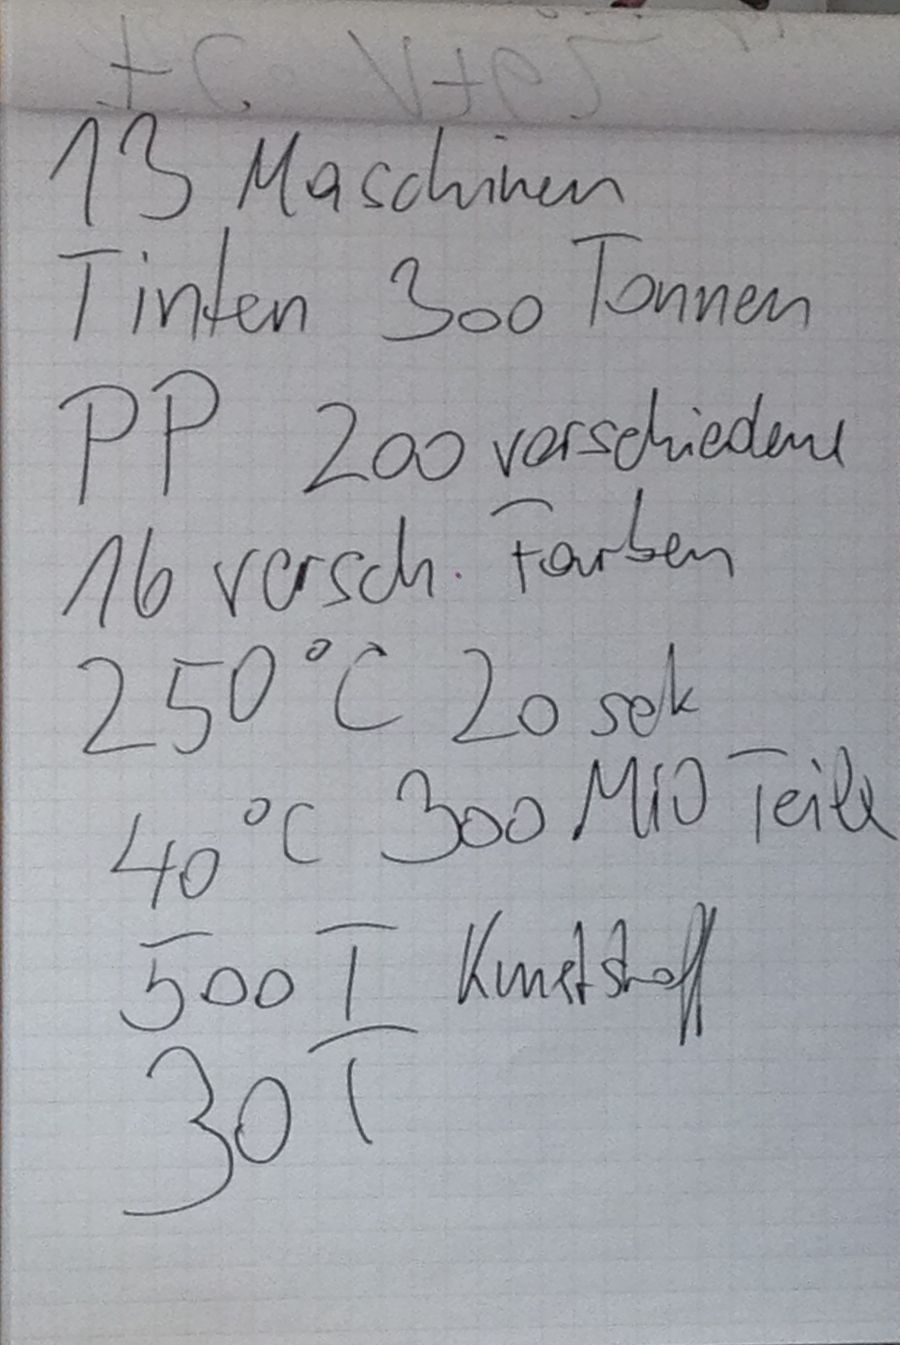 13 Maschinen
Tinten 300 Tonnen
PP 200 verschiedene
16 versch. Farben
250°C 20 sek
40°C 300 MIO Teile
500 T Kunststoff
30 T